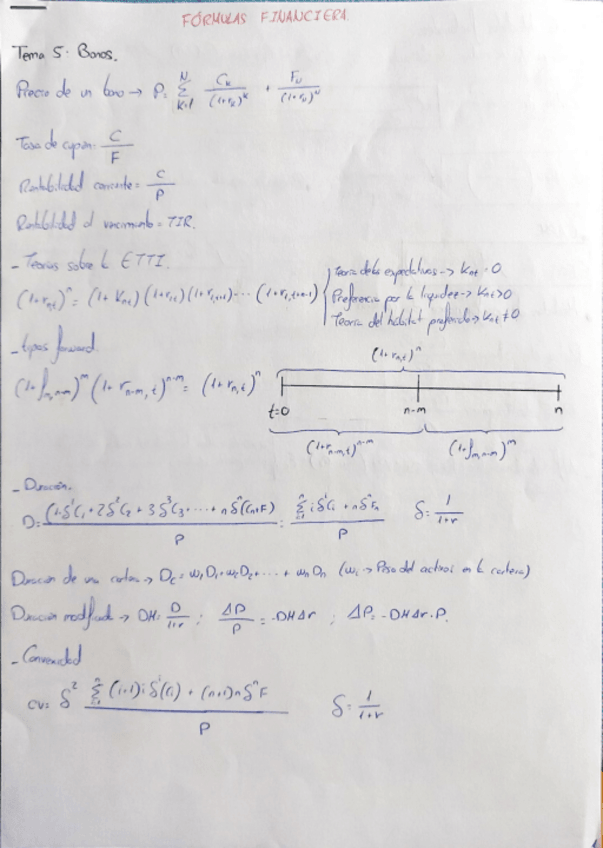 FÓRMULAS FINANCIERA.
Tema 5: Bonos.
Precio de un bono → P = Σ_{k=1}^{N} C_k / (1+r_k)^k + F_N / (1+r_N)^N
Tasa de cupón = C / F
Rentabilidad corriente = C / P
Rentabilidad al vencimiento = TIR.
- Teorías sobre la ETTI.
(1+r_{n,t})^n = (1+K_{n,t})(1+r_{1,t})(1+r_{1,t+1})···(1+r_{1,t+n-1})
Teoría de las expectativas → K_{n,t} = 0
Preferencia por la liquidez → K_{n,t} > 0
Teoría del hábitat preferido → K_{n,t} ≠ 0
- tipos forward.
(1+f_{m,n-m})^m (1+r_{n-m,t})^{n-m} = (1+r_{n,t})^n
(1+r_{n,t})^n
t=0 n-m n
(1+r_{n-m,t})^{n-m} (1+f_{m,n-m})^m
- Duración.
D = (1·δ^1 C_1 + 2δ^2 C_2 + 3δ^3 C_3 + ··· + nδ^n(C_n+F)) / P = (Σ_{i=1}^{n} iδ^i C_i + nδ^n F_n) / P δ = 1 / (1+r)
Duración de una cartera → D_c = w_1D_1 + w_2D_2 + ··· + w_nD_n (w_i → Peso del activo i en la cartera)
Duración modificada → DM = D / (1+r) ; ΔP / P = -DMΔr ; ΔP = -DMΔr·P.
- Convexidad
CV = δ^2 (Σ_{i=1}^{n} (i+1)iδ^i(C_i) + (n+1)nδ^n F) / P δ = 1 / (1+r)